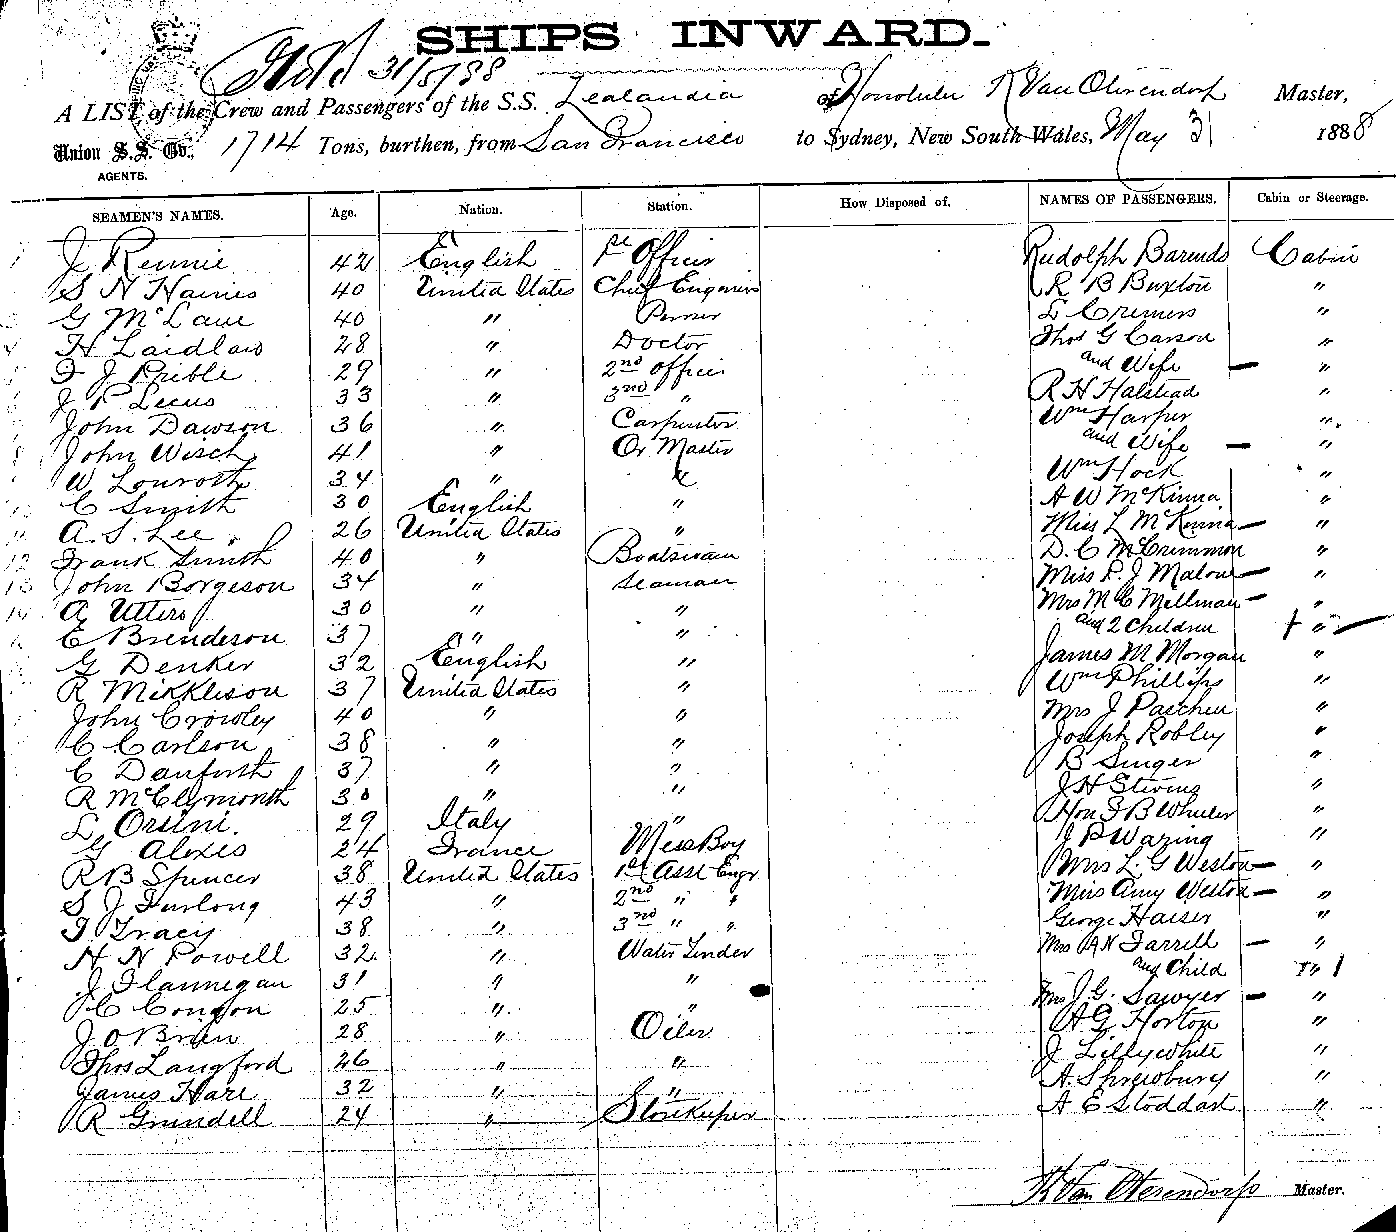 SHIPS INWARD.
31/5/88
A LIST of the Crew and Passengers of the S.S. Zealandia of Honolulu R Van Oterendorp Master,
Union S.S. Co., 1714 Tons, burthen, from San Francisco to Sydney, New South Wales, May 31 1888
AGENTS.
SEAMEN'S NAMES. Age. Nation. Station. How Disposed of. NAMES OF PASSENGERS. Cabin or Steerage.
J Rennie 42 English 1st Officer Rudolph Barends Cabin
S N Haines 40 United States Chief Engineer R B Buxton "
G McLane 40 " Purser L Cremers "
H Laidlaw 28 " Doctor Thos G Carson "
F J Prible 29 " 2nd Officer and Wife — "
J P Lecus 33 " 3rd " R H Halstead "
John Dawson 36 " Carpenter Wm Harper "
John Wisch 41 " Qr Master and Wife — "
W Lonroth 34 " " Wm Hock "
C Smith 30 English " A W McKinna "
A. S. Lee 26 United States " Miss L McKinna — "
12 Frank Smith 40 " Boatswain D. C McCrimmon "
13 John Borgeson 34 " Seaman Miss P. J Malone — "
14 A Utters 30 " " Mrs M C Mellman — "
E Brenderson 37 " " and 2 Children "
G Denker 32 English " James M Morgan "
R Mikkleson 37 United States " Wm Phillips "
John Crowley 40 " " Mrs J Paschen "
C Carlson 38 " " Joseph Robley "
C Danforth 37 " " B Singer "
R McClymonth 30 " " J H Stevens "
L Orsini. 29 Italy " Hon F B Wheeler "
G Alexis 24 France Mess Boy J P Waring "
R B Spencer 38 United States 1st Asst Engr Mrs L. G Weston — "
S J Furlong 43 " 2nd " " Miss Amy Weston — "
T Tracy 38 " 3rd " " George Haeser "
H N Powell 32 " Water Tender Mrs A N Farrell — "
J Flannegan 31 " " and Child " 1
C Congon 25 " " Mrs J. G. Sawyer — "
J O Brien 28 " Oiler A G Horton "
Thos Langford 26 " " J Lillywhite "
James Hare 32 " " A. Shrewbury "
R Grundell 24 " Storekeeper A E Stoddart "
R Van Oterendorp Master.